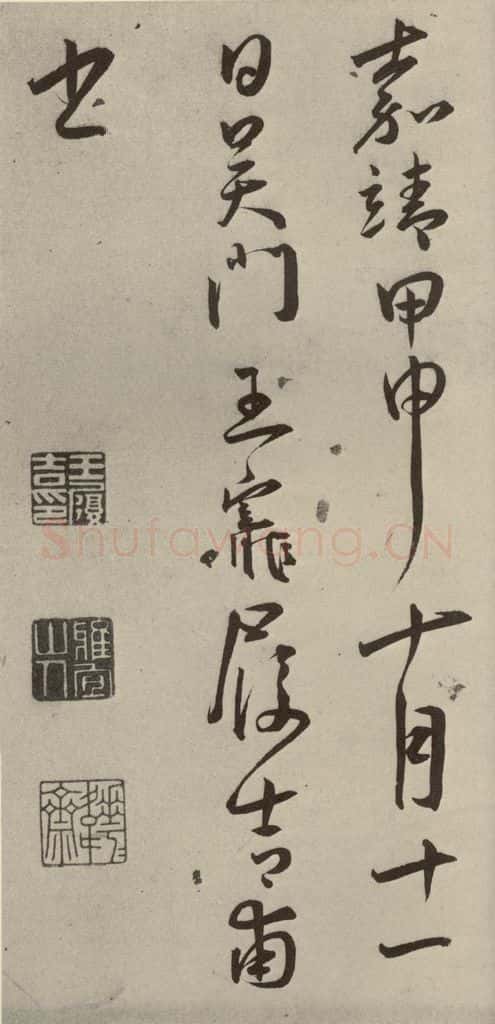 嘉靖甲申十月十一
日吴門王寵履吉甫
书
王履吉印
雅宜山人
Shufawang.CN